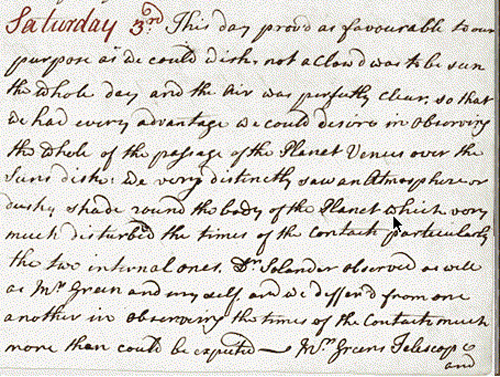 Saturday 3rd This day prov'd as favourable to our
purpose as we could wish, not a Clowd was to be seen
the whole day and the Air was perfectly clear, so that
we had every advantage we could desire in Observing
the whole of the passage of the Planet Venus over the
Suns disk: we very distinctly saw an Atmosphere or
dusky shade round the body of the Planet which very
much disturbed the times of the Contacts particularly
the two internal ones. Dr Solander observed as well
as Mr Green and my self, and we differ'd from one
another in observeing the times of the Contacts much
more than could be expected — Mr Greens Telescope
and